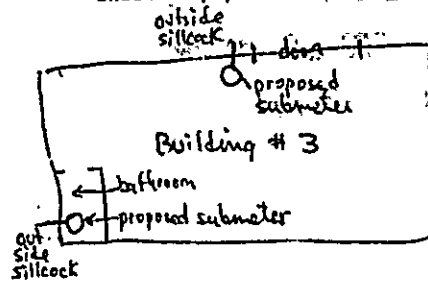 outside
sillcock
door
proposed
submeter
Building # 3
bathroom
proposed submeter
out.
side
sillcock